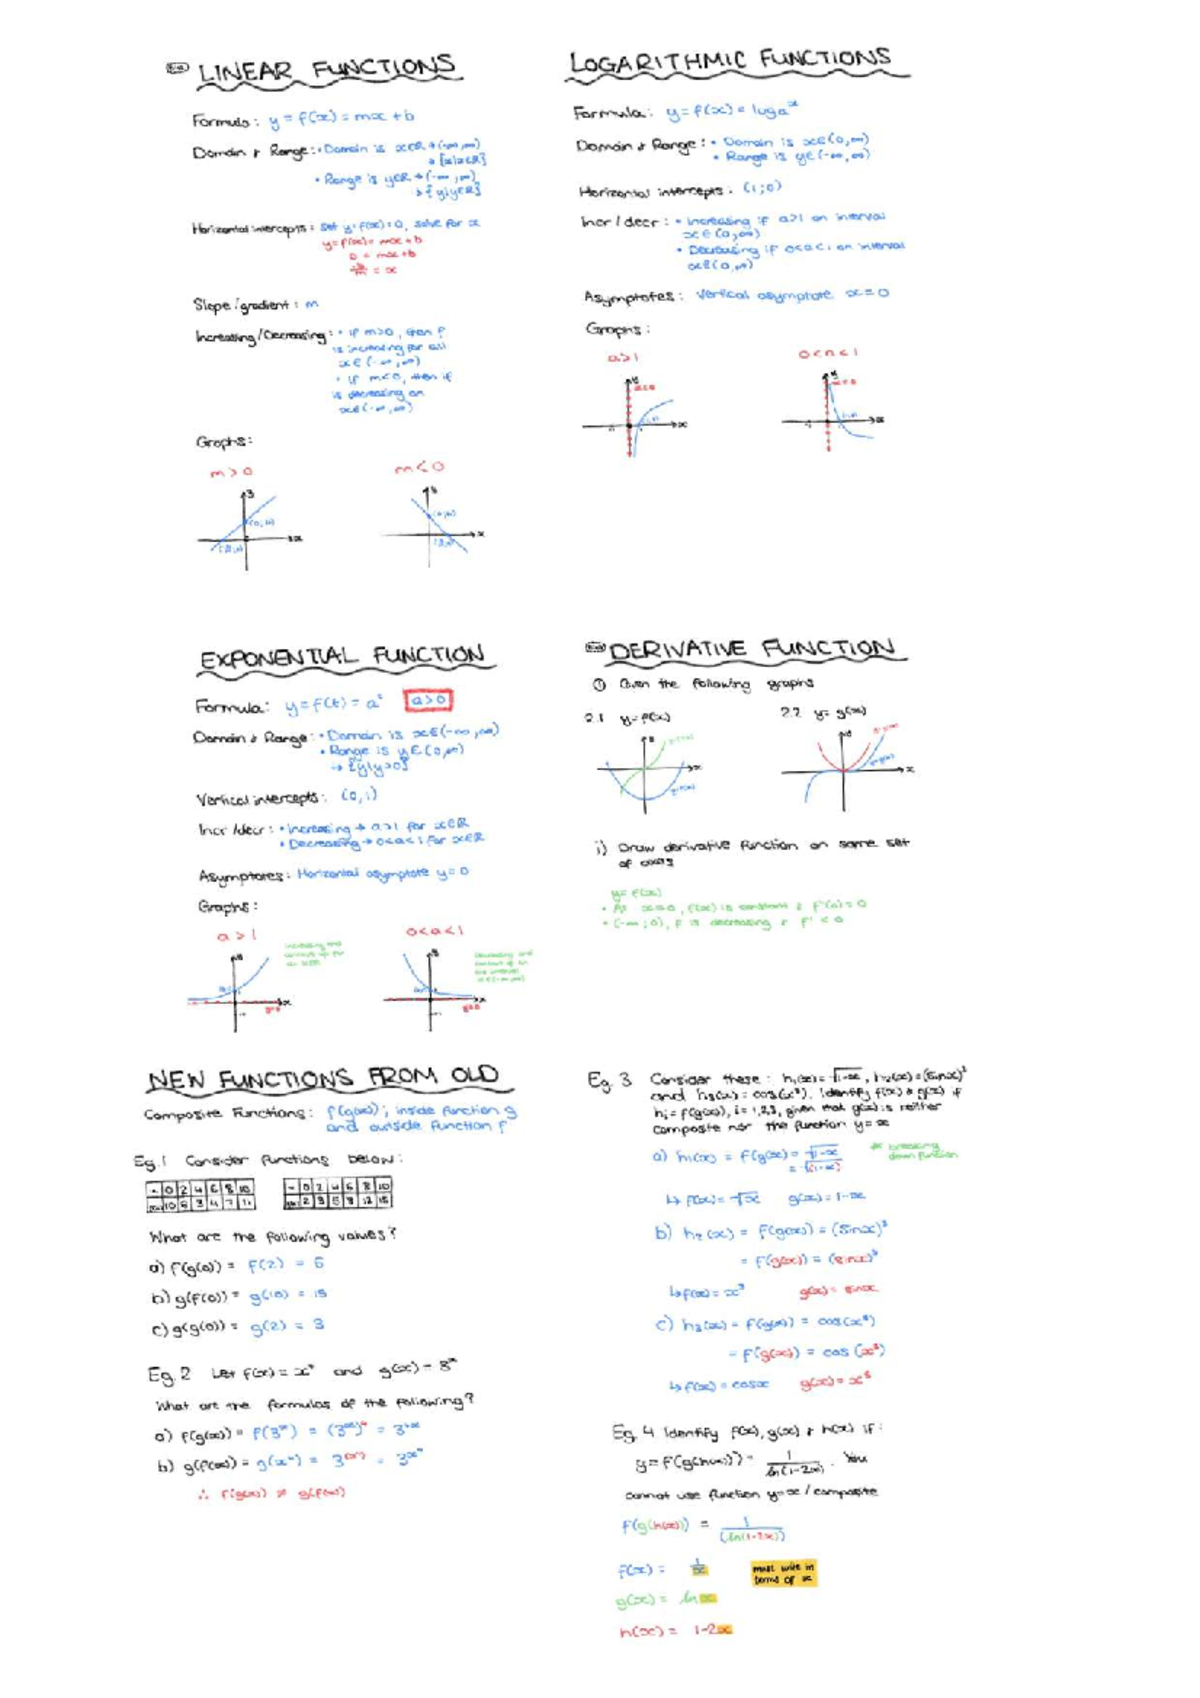 LINEAR FUNCTIONS
Formula: y = f(x) = mx + b
Domain & Range: • Domain is x∈R → (-∞,∞)
→ {x|x∈R}
• Range is y∈R → (-∞,∞)
→ {y|y∈R}
Horizontal intercepts: set y=f(x)=0, solve for x
y=f(x)=mx+b
0 = mx+b
= x
Slope/gradient: m
Increasing/Decreasing: • if m>0, then f
is increasing for all
x∈(-∞,∞)
• if m<0, then f
is decreasing on
x∈(-∞,∞)
Graphs:
m>0
m<0
LOGARITHMIC FUNCTIONS
Formula: y = f(x) = log a^x
Domain & Range: • Domain is x∈(0,∞)
• Range is y∈(-∞,∞)
Horizontal intercepts: (1;0)
Incr/decr: • Increasing if a>1 on interval
x∈(0,∞)
• Decreasing if 0<a<1 on interval
x∈(0,∞)
Asymptotes: Vertical asymptote x=0
Graphs:
a>1
0<a<1
EXPONENTIAL FUNCTION
Formula: y = f(t) = a^t a>0
Domain & Range: • Domain is x∈(-∞,∞)
• Range is y∈(0,∞)
→ {y|y>0}
Vertical intercepts: (0,1)
Incr/decr: • Increasing → a>1 for x∈R
• Decreasing → 0<a<1 for x∈R
Asymptotes: Horizontal asymptote y=0
Graphs:
a>1
0<a<1
DERIVATIVE FUNCTION
① Given the following graphs
2.1 y=f(x)
2.2 y=g(x)
i) Draw derivative function on same set
of axes
y=f(x)
• At x=0, f(x) is constant & f'(0)=0
• (-∞;0), f is decreasing & f' < 0
NEW FUNCTIONS FROM OLD
Composite Functions: f(g(x)); inside function g
and outside function f
Eg.1 Consider functions below:
0 2 4 6 8 10
10 6 3 4 7 11
0 2 4 6 8 10
2 3 5 8 12 15
What are the following values?
a) f(g(0)) = f(2) = 6
b) g(f(0)) = g(10) = 15
c) g(g(0)) = g(2) = 3
Eg.2 Let f(x) = x⁴ and g(x) = 3^x
What are the formulas of the following?
a) f(g(x)) = f(3^x) = (3^x)⁴ = 3^4x
b) g(f(x)) = g(x⁴) = 3^(x⁴) = 3^x⁴
∴ f(g(x)) ≠ g(f(x))
Eg.3 Consider these: h₁(x)=√1-x, h₂(x)=(sinx)³
and h₃(x) = cos(x³). Identify f(x) & g(x) if
hᵢ = f(g(x)), i = 1,2,3, given that g(x) is neither
composite nor the function y=x
a) h₁(x) = f(g(x)) = √1-x
= √(1-x)
* breaking
down function
↳ f(x) = √x g(x) = 1-x
b) h₂(x) = f(g(x)) = (sinx)³
= f(g(x)) = (sinx)³
↳ f(x) = x³ g(x) = sinx
c) h₃(x) = f(g(x)) = cos(x³)
= f(g(x)) = cos(x³)
↳ f(x) = cosx g(x) = x³
Eg.4 Identify f(x), g(x) & h(x) if:
y = f(g(h(x))) = 1/ln(1-2x). You
cannot use function y=x / composite
f(g(h(x))) = 1/(ln(1-2x))
f(x) = 1/x
must write in
terms of x
g(x) = ln x
h(x) = 1-2x